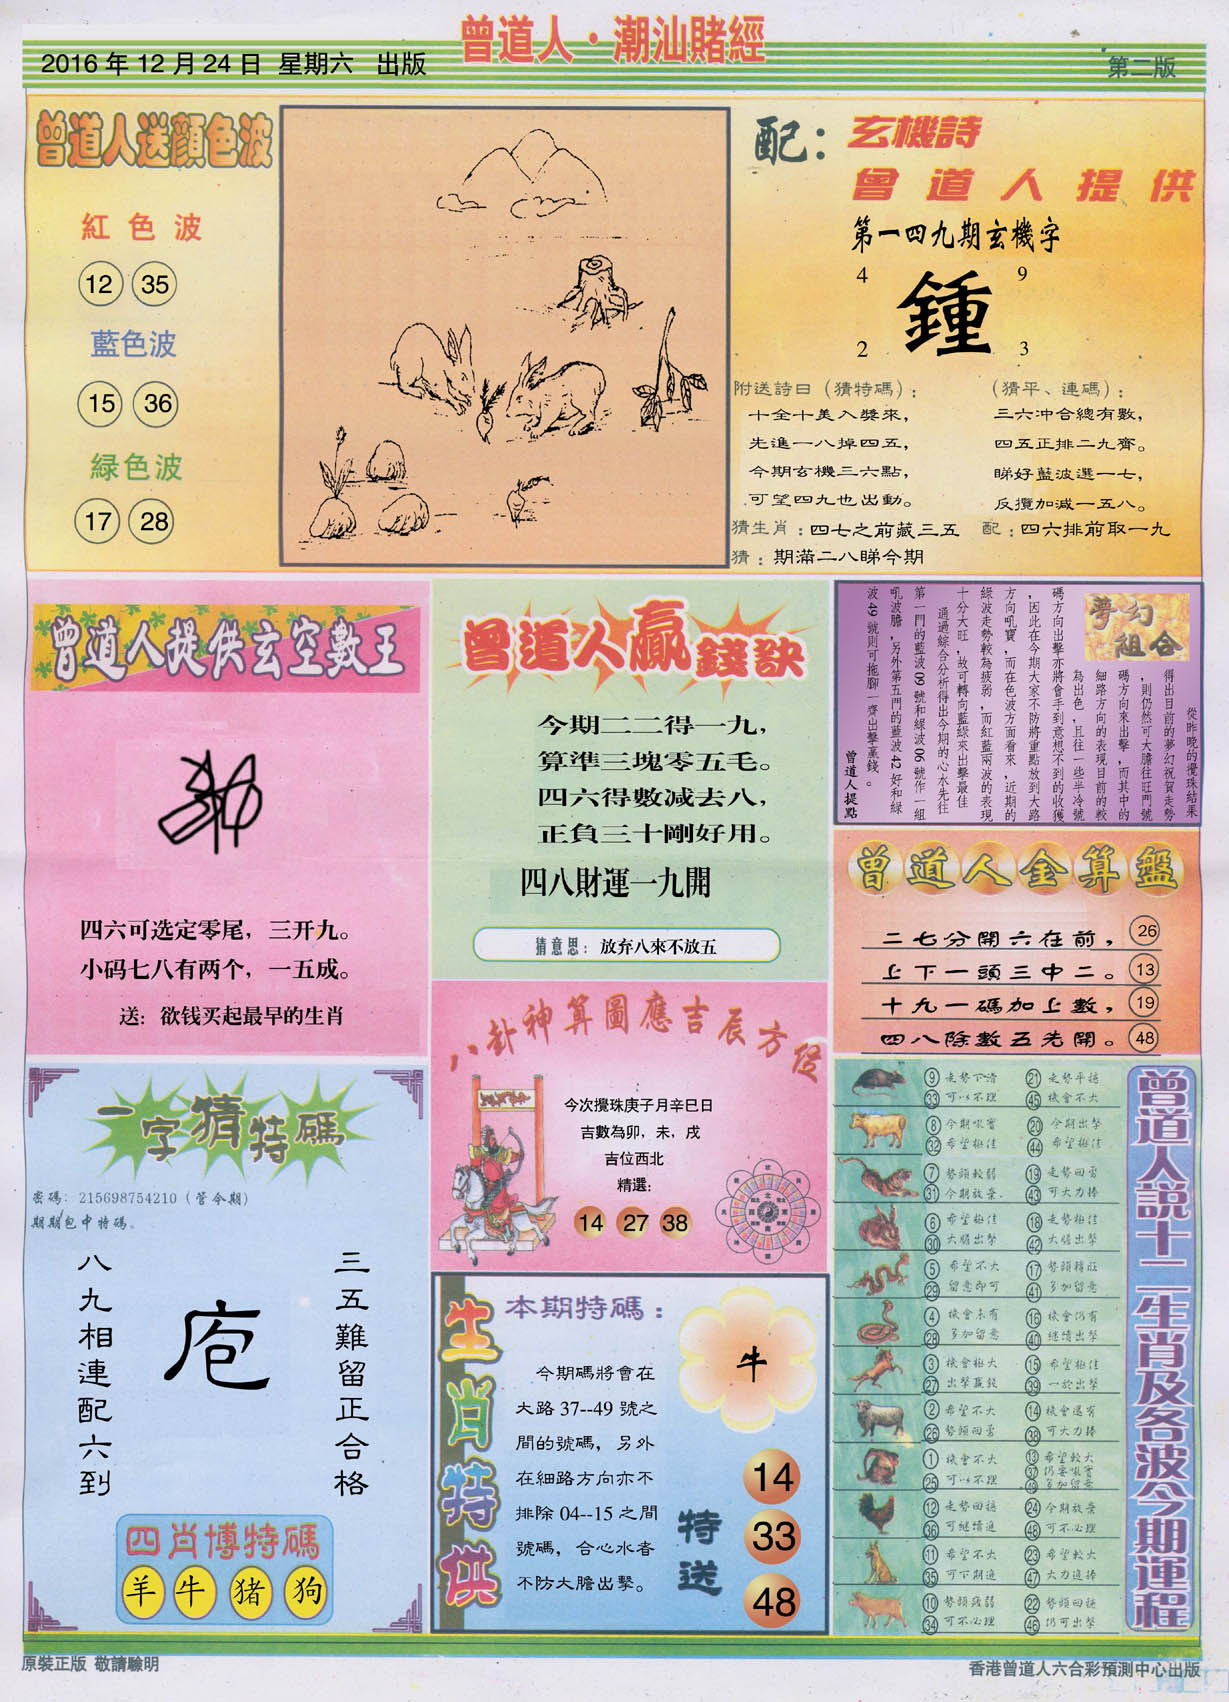 曾道人·潮汕賭經
2016 年 12 月 24 日 星期六 出版
第二版
曾道人送顏色波
紅色波
12 35
藍色波
15 36
緑色波
17 28
配:
玄機詩
曾道人提供
第一四九期玄機字
4 9
鍾
2 3
附送詩曰（猜特碼）:
十全十美入獎來，
先進一八掉四五，
今期玄機三六點，
可望四九也出動。
（猜平、連碼）:
三六冲合總有數，
四五正排二九齊。
睇好藍波選一七，
反攬加減一五八。
猜生肖:四七之前藏三五
配:四六排前取一九
猜:期滿二八睇今期
曾道人提供玄空數王
四六可选定零尾，三开九。
小码七八有两个，一五成。
送：欲钱买起最早的生肖
曾道人贏錢訣
今期二二得一九，
算準三塊零五毛。
四六得數减去八，
正負三十剛好用。
四八財運一九開
猜意思: 放弃八來不放五
夢幻
組合
從昨晚的攪珠結果
得出目前的夢幻祝賀走勢
，則仍然可大膽往旺門號
碼方向來出擊，而其中的
細路方向的表現目前的較
為出色，且往一些半冷號
碼方向出擊亦將會手到意想不到的收獲
，因此在今期大家不防將重點放到大路
方向吼寶，而在色波方面看來，近期的
綠波走勢較為疲弱，而紅藍兩波的表現
十分大旺，故可轉向藍綠來出擊最佳
通過綜合分析得出今期的心水先往
第一門的藍波 09 號和綠波 06 號作一組
吼波膽，另外第五門的藍波 42 好和綠
波 49 號則可拖腳一齊出擊贏錢。
曾道人提點
曾道人金算盤
二七分開六在前， 26
上下一頭三中二。 13
十九一碼加上數， 19
四八除數五先開。 48
八卦神算圖應吉辰方位
今次攪珠庚子月辛巳日
吉數為卯，未，戌
吉位西北
精選:
14 27 38
一字猜特碼
密碼: 215698754210 (管令期)
期期包中特碼。
三五難留正合格
庖
八九相連配六到
四肖博特碼
羊 牛 猪 狗
生肖特供
本期特碼:
牛
今期碼將會在
大路 37--49 號之
間的號碼，另外
在細路方向亦不
排除 04--15 之間
號碼，合心水者
不防大膽出擊。
特送
14
33
48
曾道人説十二生肖及各波今期運程
9 走勢下滑 21 走勢平穩
33 可以不理 45 機會不大
8 今期吼實 20 今期出擊
32 希望極佳 44 希望極佳
7 勢頭較弱 19 走勢回勇
31 今期放棄 43 可大力捧
6 希望極佳 18 走勢極佳
30 大膽出擊 42 大膽出擊
5 希望不大 17 勢頭轉旺
29 留意即可 41 多加留意
4 機會未有 16 機會仍有
28 多加留意 40 繼續出擊
3 機會極大 15 希望極佳
27 出擊贏錢 39 一於出擊
2 希望不大 14 機會還有
26 勢頭回勇 38 可大力捧
1 機會不大 13 希望較大
25 可以不理 37 仍要吼實
49 多加留意
12 走勢回穩 24 今期放棄
36 可繼續追 48 可不必理
11 希望不大 23 希望較大
35 可下期追 47 大力追捧
10 勢頭疲弱 22 勢頭回穩
34 可不必理 46 仍可出擊
原裝正版 敬請驗明
香港曾道人六合彩預測中心出版